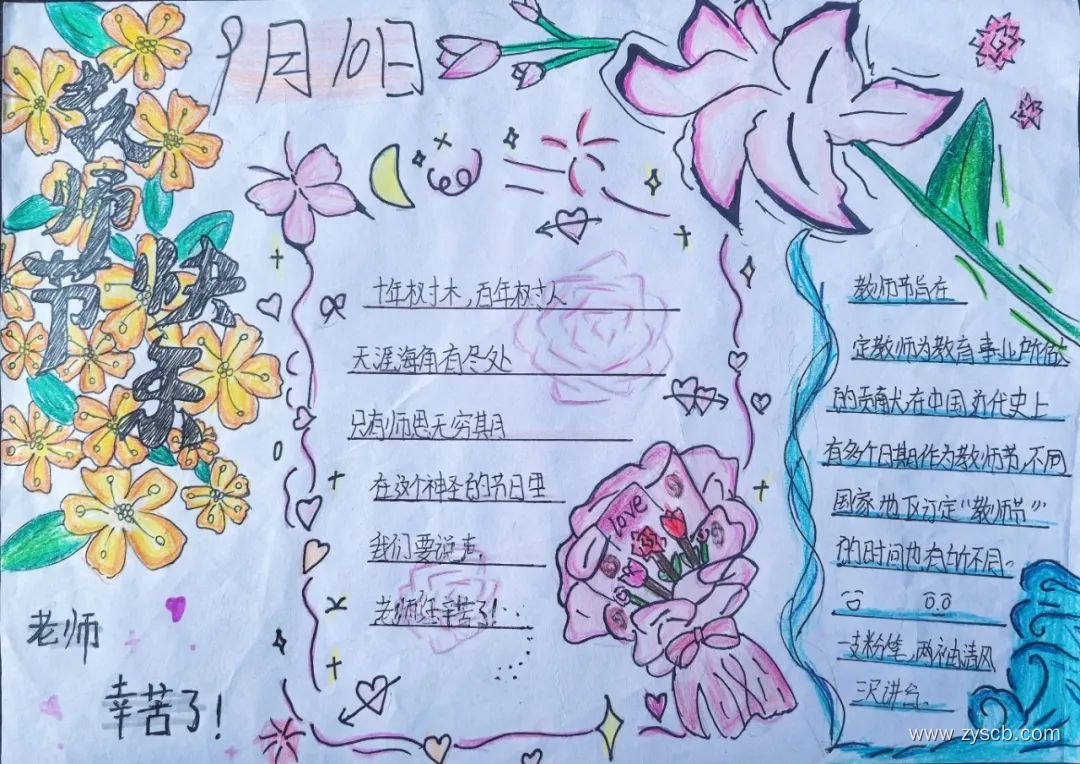 9月10日
教师节
快乐
十年树木,百年树人
天涯海角有尽处
只有师恩无穷期
在这个神圣的节日里
我们要说声
老师您辛苦了!...
love
教师节旨在
定教师为教育事业所做
的贡献在中国近代史上
有多个日期作为教师节,不同
国家地区订定“教师节”
的时间也有所不同。
一支粉笔,两袖清风
三尺讲台。
老师
幸苦了!
www.zyscb.com